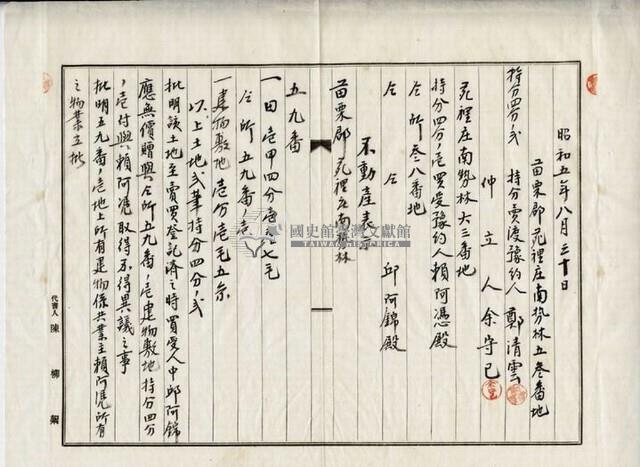 昭和五年八月三十日
苗栗郡苑裡庄南勢林五叁番地
持分四分ノ弍 持分賣渡豫約人 鄭清雲
仲立人 余守已
苑裡庄南勢林六三番地
持分四分ノ壱買受豫約人 賴阿馮殿
仝所叁八番地
仝 仝 邱阿錦殿
不動產表示
苗栗郡苑裡庄南勢林
五九番
一田 壱甲四分壱厘七毛
仝所五九番ノ壱
一建物敷地 壱分壱毛五糸
以上土地弍筆持分四分ノ弍
批明該土地至賣買登記濟之時買受人中邱阿錦
應無價贈與仝所五九番ノ壱建物敷地持分四分
ノ壱付與賴阿馮取得不得異議之事
批明五九番ノ壱地上所有建物係共業主賴阿馮所有
之物業立批
代書人 陳柳
國史館臺灣文獻館
TAIWAN HISTORICA